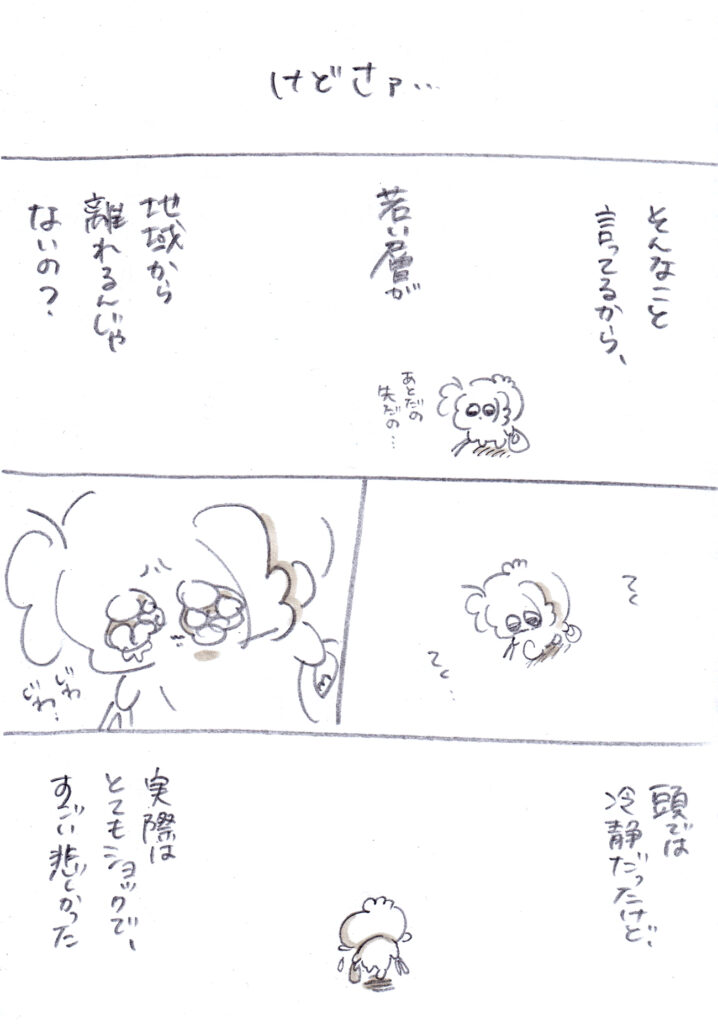 けどさァ…
そんなこと
言ってるから、
若い層が
地域から
離れるんじゃ
ないの?
あとだの
失だの…
てく
てく…
じわ
じわ…
頭では
冷静だったけど、
実際は
とてもショックで、
すごい悲しかった